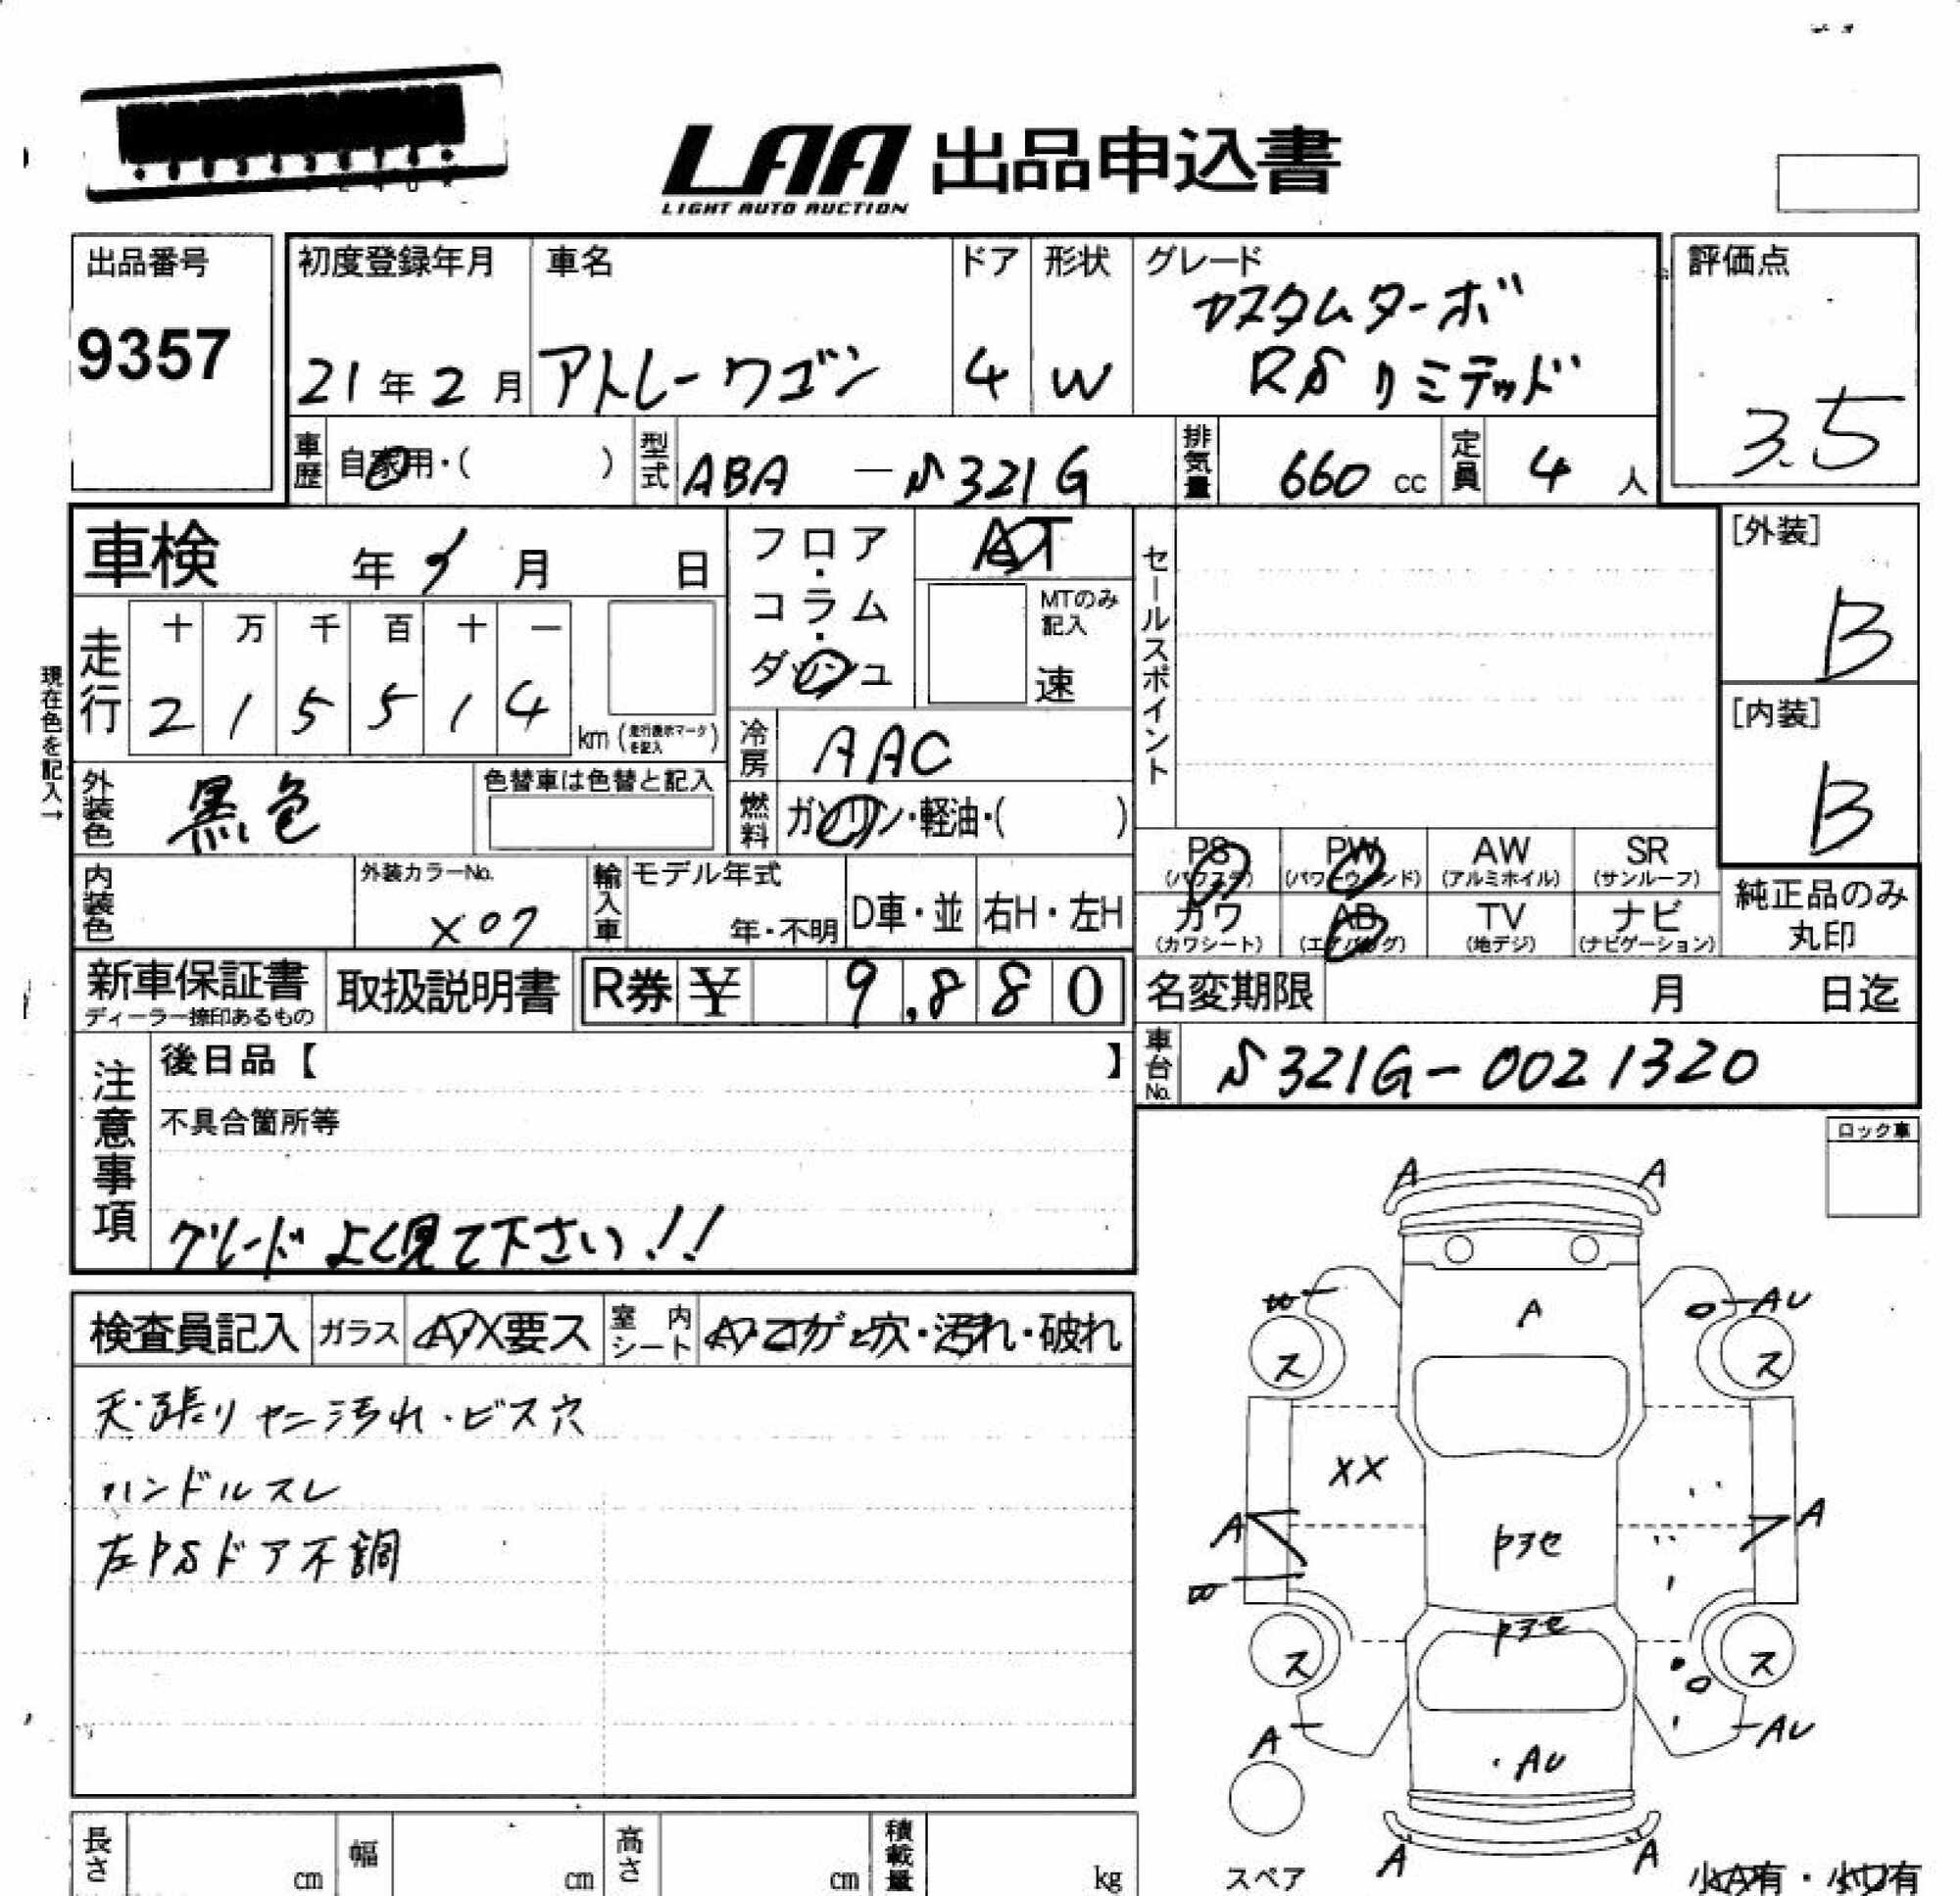 LAA 出品申込書
LIGHT AUTO AUCTION
出品番号
9357
初度登録年月
21年2月
車名
アトレーワゴン
ドア
4
形状
W
グレード
カスタムターボ
RSリミテッド
評価点
3.5
車歴
自家用・( )
型式
ABA — S321G
排気量
660 cc
定員
4 人
車検 年 月 日
フロア・コラム・ダッシュ
AT
MTのみ記入
速
セールスポイント
[外装]
B
[内装]
B
現在色を記入→
走行
十 万 千 百 十 一
2 1 5 5 1 4
km (走行表示マークを記入)
冷房
AAC
外装色
黒色
色替車は色替と記入
燃料
ガソリン・軽油・( )
内装色
外装カラーNo.
X07
輸入車
モデル年式
年・不明
D車・並
右H・左H
PS (パワステ)
PW (パワーウィンド)
AW (アルミホイル)
SR (サンルーフ)
カワ (カワシート)
AB (エアバッグ)
TV (地デジ)
ナビ (ナビゲーション)
純正品のみ
丸印
新車保証書
ディーラー捺印あるもの
取扱説明書
R券 ¥ 9,880
名変期限 月 日迄
車台No.
S321G-0021320
注意事項
後日品【 】
不具合箇所等
グレードよく見て下さい!!
ロック車
検査員記入
ガラス
A・X要ス
室内シート
A・コゲ・穴・汚れ・破れ
天張りヤニ汚れ・ビス穴
ハンドルスレ
左PSドア不調
A A
A
AU
ス ス
XX
A A
ス ス
A
AU
AU
A A
スペア
小A有・小U有
長さ cm
幅 cm
高さ cm
積載量 kg